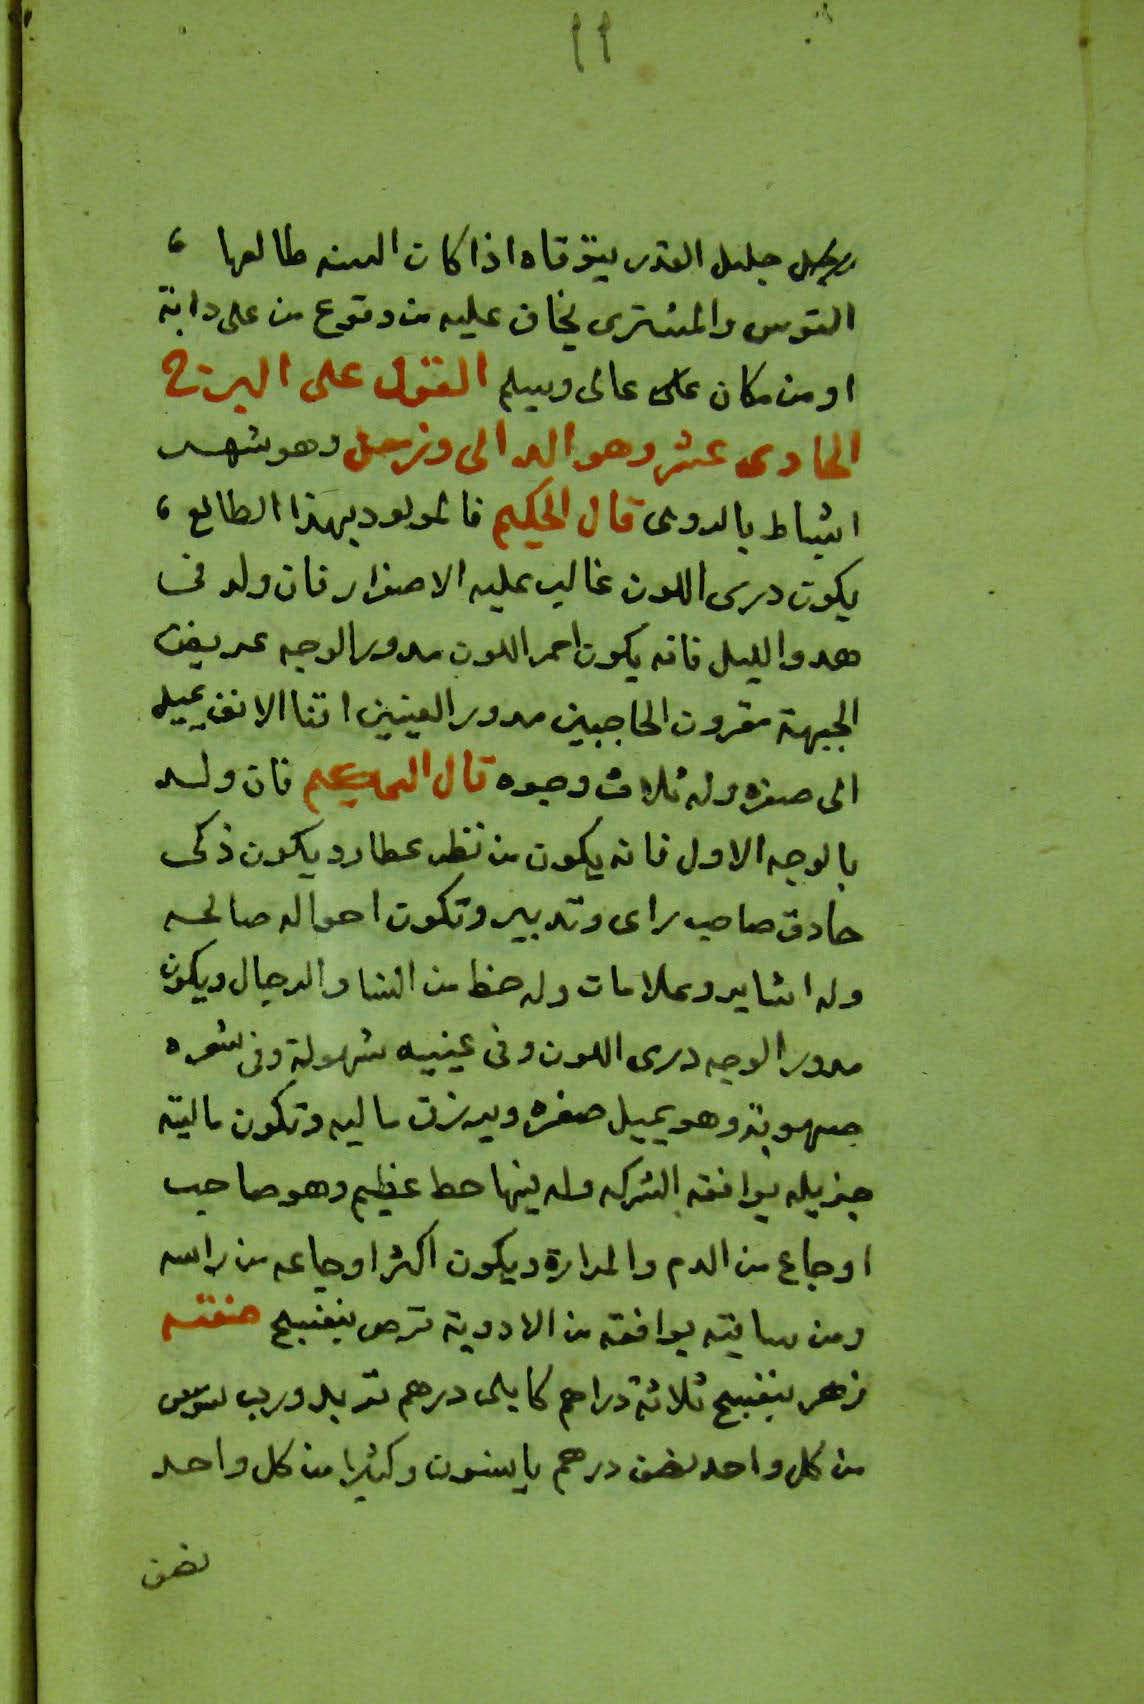 ٩٩
رجل جليل القدر يتوقاه اذا كان السنه طالعها ،
القوس والمشترى يخاف عليه من وقوع من على دابة
او من مكان على عالى ويسلم القول على البرج
الحادى عشر وهو الدالى وزحل وهو شهر
اشباط بالرومى قال الحكيم فالمولود بهذا الطالع ،
يكون درى اللون غالب عليه الاصفرار فان ولد فى
هدو الليل فانه يكون احمر اللون مدور الوجه عريض
الجبهة مقرون الحاجبين مدور العينين اقنا الانف يميل
الى صفره وله ثلاث وجوه قال الحكيم فان ولد
بالوجه الاول فانه يكون من نظر عطارد يكون ذكى
حادق صاحب راى وتدبير وتكون احواله صالحه
وله اشاير وعلامات وله حظ من النسا والرجال ويكون
مدور الوجه درى اللون وفى عينيه شهولة وفى شعره
صهوبة وهو يميل صفره ويرزق ماليه وتكون ماليته
جزيله يوافقه الشركه وله فيها حط عظيم وهو صاحب
اوجاع من الدم والمرارة ويكون اكثر اوجاعه من راسه
ومن ساقيه يوافقه من الادوية قرص بنفسج صفته
زهر بنفسج ثلاثة دراهم كابلى درهم تربد ورب سوس
من كل واحد نصف درهم يانسون وكثيرا من كل واحد
نصف